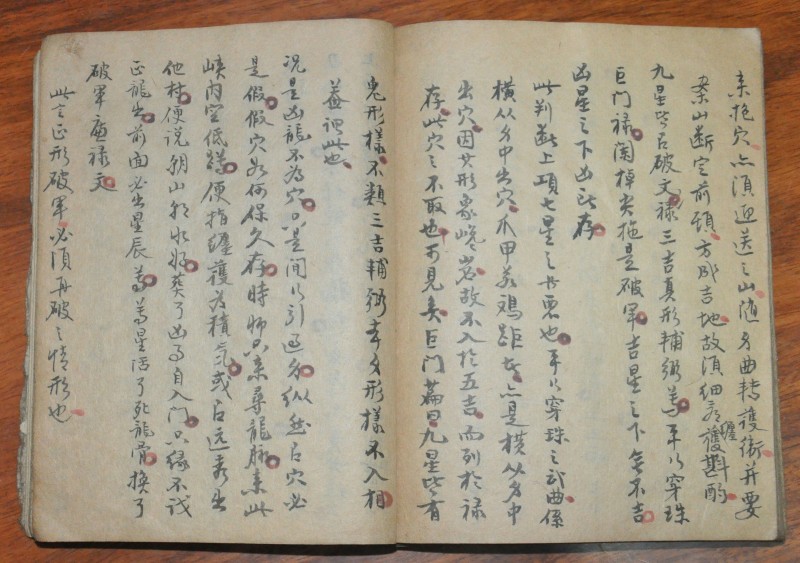 來抱穴亦須迎送之山隨身曲轉護衛并要
案山斷定前頭方成吉地故須細看纏護斟酌
九星皆有破文祿三吉真形輔弼為平行穿珠
巨門祿闊掉尖拖是破軍吉星之下無不吉
凶星之下凶所存
此判斷上項七星之吉惡也平行穿珠之武曲係
橫從身中出穴爪甲若鷄距者亦是橫從身中
出穴因其形象巉巖故不入於五吉而列於祿
存此穴之不取也可見矣巨門篇曰九星皆有
鬼形樣不類三吉輔弼幸多形樣不入相
蓋謂此也
況是凶龍不為穴只是間行引過身縱然有穴必
是假假穴如何保久存時師只來尋龍脈來此
峽內空低蹲便指纏護為積氣或有遠秀出
他村便說朝山朝水好葬了凶事自入門只緣不識
正龍出前面必出星辰尊尊星活了死龍骨換了
破軍廉祿文
此言正形破軍必須再破之情形也